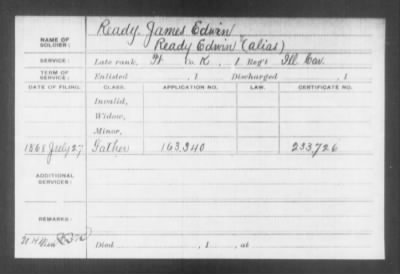 NAME OF SOLDIER: Ready, James Edwin
Ready Edwin (alias)
SERVICE: Late rank, Pt. Co. K, 1 Reg't Ill Cav.
TERM OF SERVICE: Enlisted , 1 Discharged , 1
DATE OF FILING. CLASS. APPLICATION NO. LAW. CERTIFICATE NO.
Invalid,
Widow,
Minor,
1868 July 27 Father 163,340 233,726
ADDITIONAL SERVICES:
REMARKS:
Died , 1 , at